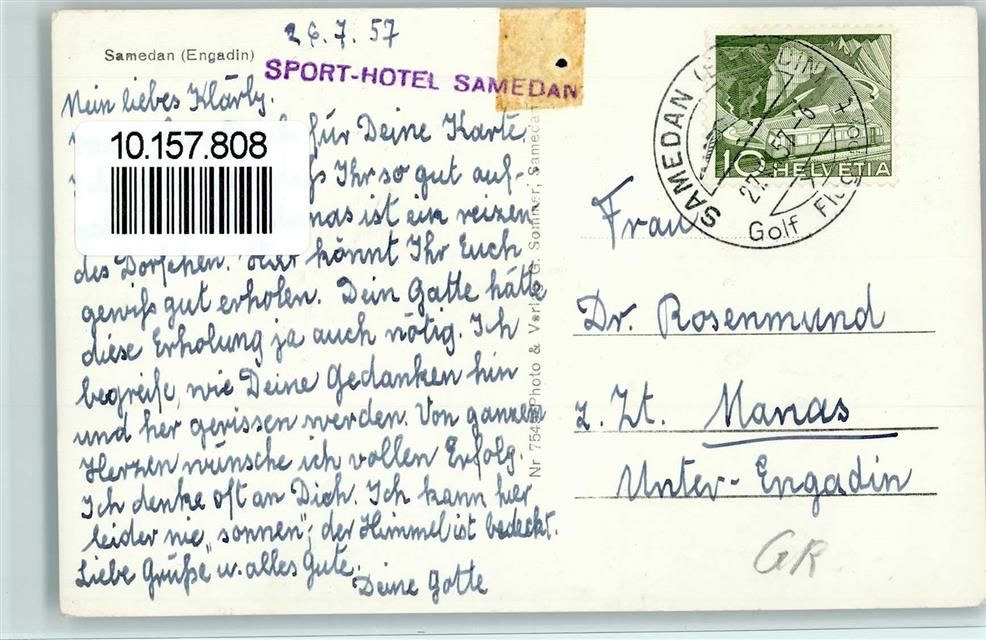 26.7.57
Samedan (Engadin)
SPORT-HOTEL SAMEDAN
Mein liebes Klärly.
für Deine Karte
Ihr so gut auf-
ist ein reizen
des Dörfchen. Hier könnt Ihr Euch
gewiß gut erholen. Dein Gatte hätte
diese Erholung ja auch nötig. Ich
begreife, wie Deine Gedanken hin
und her gerissen werden. Von ganzem
Herzen wünsche ich vollen Erfolg.
Ich denke oft an Dich. Ich kann hier
leider nie „sonnen"; der Himmel ist bedeckt.
Liebe Grüße u. alles Gute.
Deine Gotte
10.157.808
Photo & Verlag G. Sommer, Samedan
SAMEDAN
Golf
10 HELVETIA
Frau
Dr. Rosenmund
z. Zt. Manas
Unter-Engadin
GR